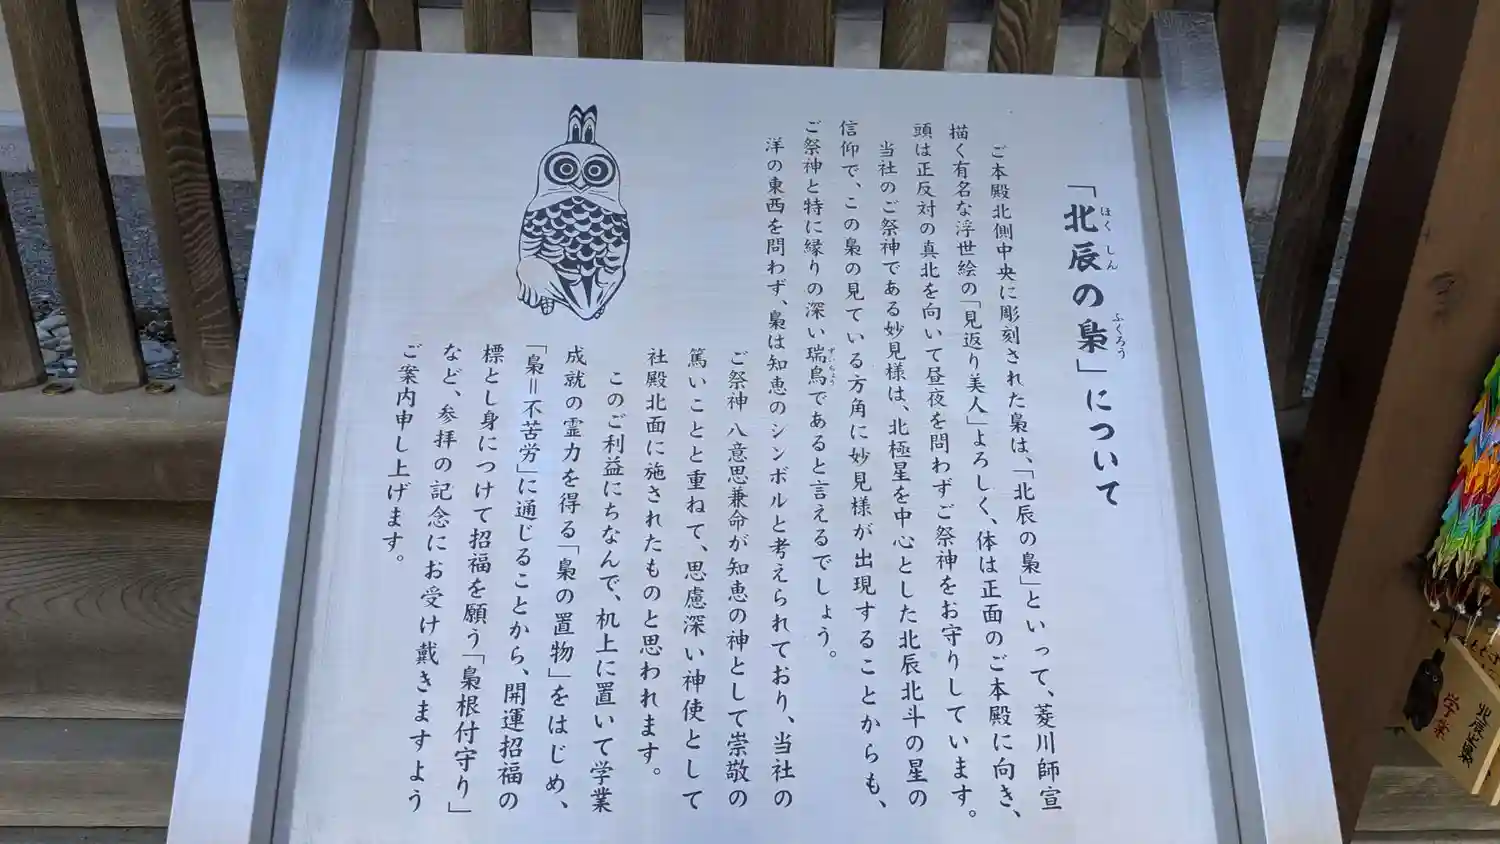 「北辰の梟」について
ほくしん
ふくろう
ご本殿北側中央に彫刻された梟は、「北辰の梟」といって、菱川師宣
描く有名な浮世絵の「見返り美人」よろしく、体は正面のご本殿に向き、
頭は正反対の真北を向いて昼夜を問わずご祭神をお守りしています。
当社のご祭神である妙見様は、北極星を中心とした北辰北斗の星の
信仰で、この梟の見ている方角に妙見様が出現することからも、
ご祭神と特に縁りの深い瑞鳥であると言えるでしょう。
ずいちょう
洋の東西を問わず、梟は知恵のシンボルと考えられており、当社の
ご祭神 八意思兼命が知恵の神として崇敬の
篤いことと重ねて、思慮深い神使として
社殿北面に施されたものと思われます。
このご利益にちなんで、机上に置いて学業
成就の霊力を得る「梟の置物」をはじめ、
「梟＝不苦労」に通じることから、開運招福の
標とし身につけて招福を願う「梟根付守り」
など、参拝の記念にお受け戴きますよう
ご案内申し上げます。
学業